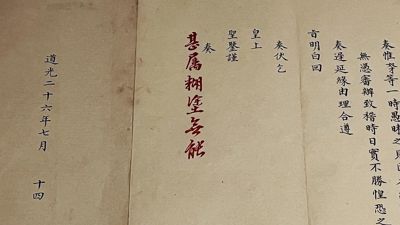 奏惟等一時愚昧之
無愚審辦致稽時日實不勝惶恐之
奏遲延緣由理合遵
旨明白回
奏伏乞
皇上
聖鑒謹
奏
甚属糊塗無能
道光二十六年七月 十四